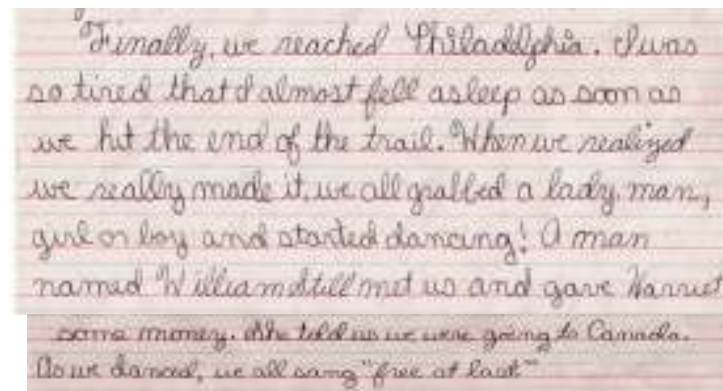 Finally, we reached Philadelphia. I was
so tired that I almost fell asleep as soon as
we hit the end of the trail. When we realized
we really made it, we all grabbed a lady, man,
girl or boy and started dancing! A man
named William Still met us and gave Harriet
some money. She told us we were going to Canada.
As we danced, we all sang "free at last"